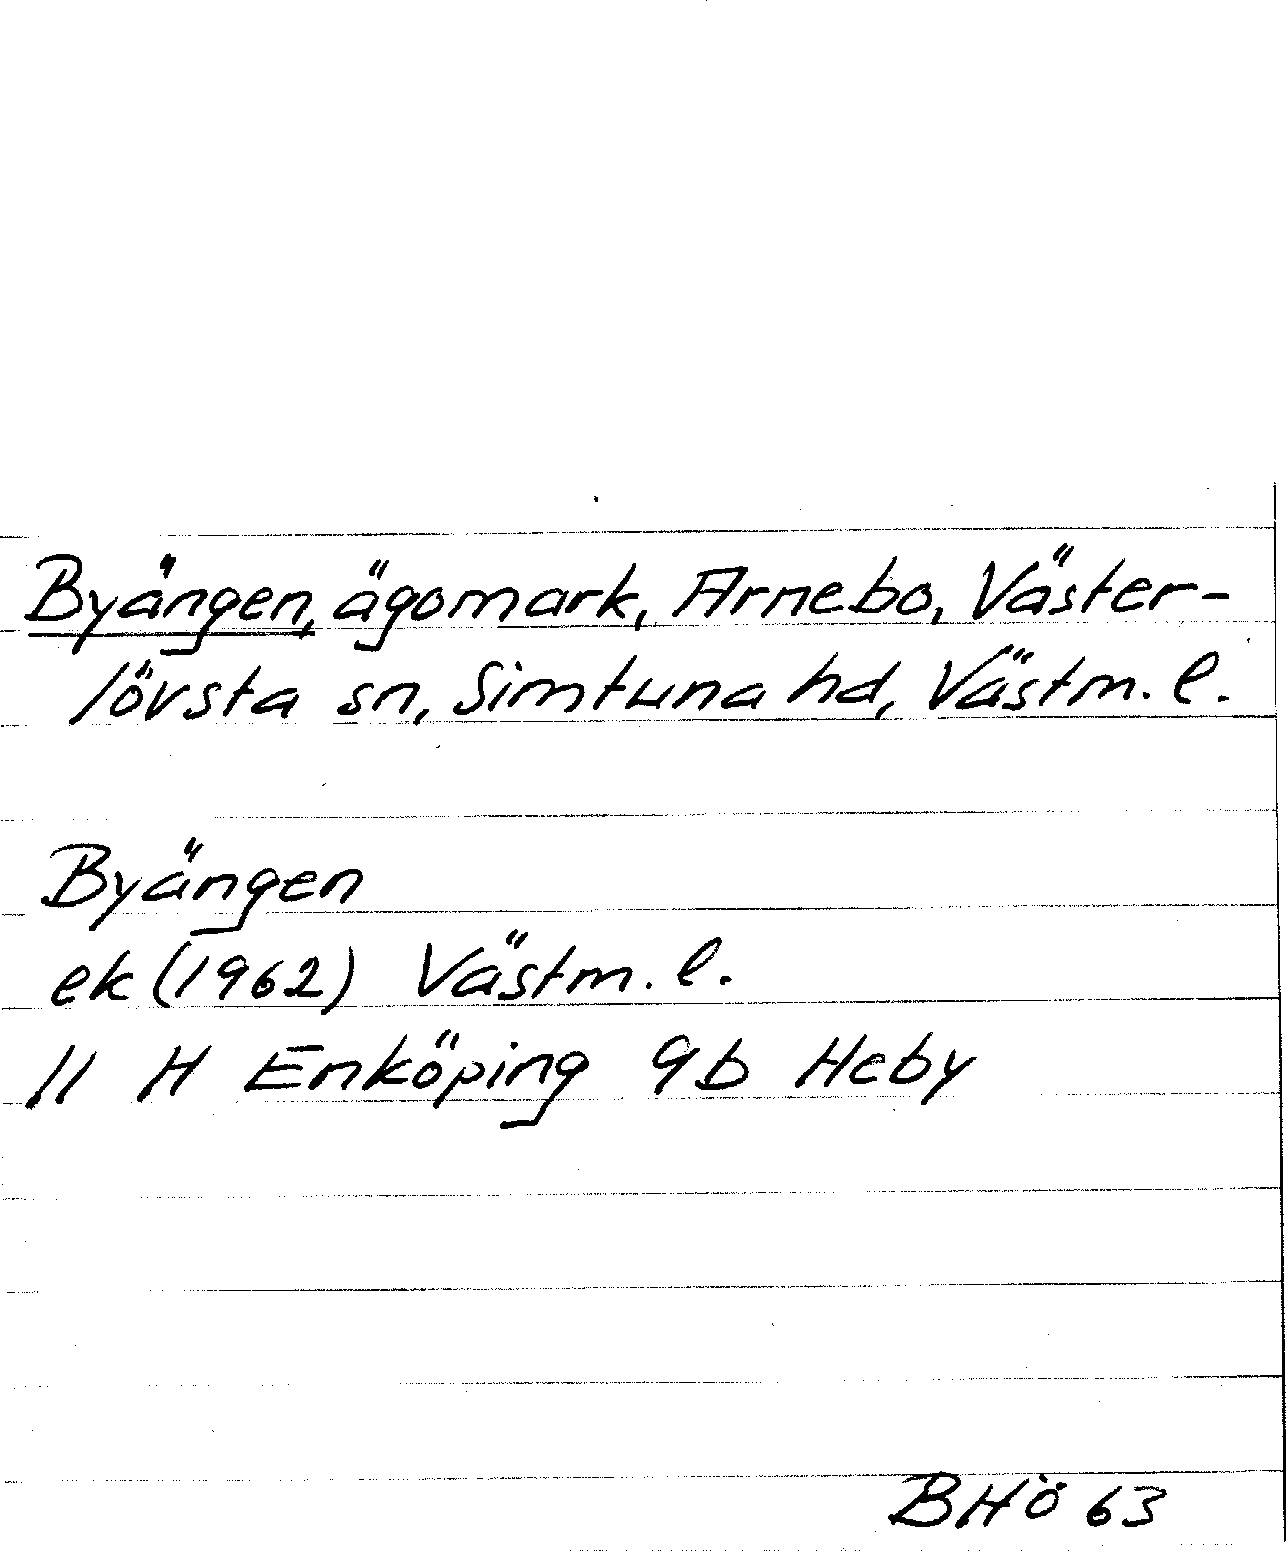 Byängen, ägomark, Arnebo, Väster-
lövsta sn, Simtuna hd, Västm. l.
Byängen
ek (1962) Västm. l.
11 H Enköping 9b Heby
BHö 63